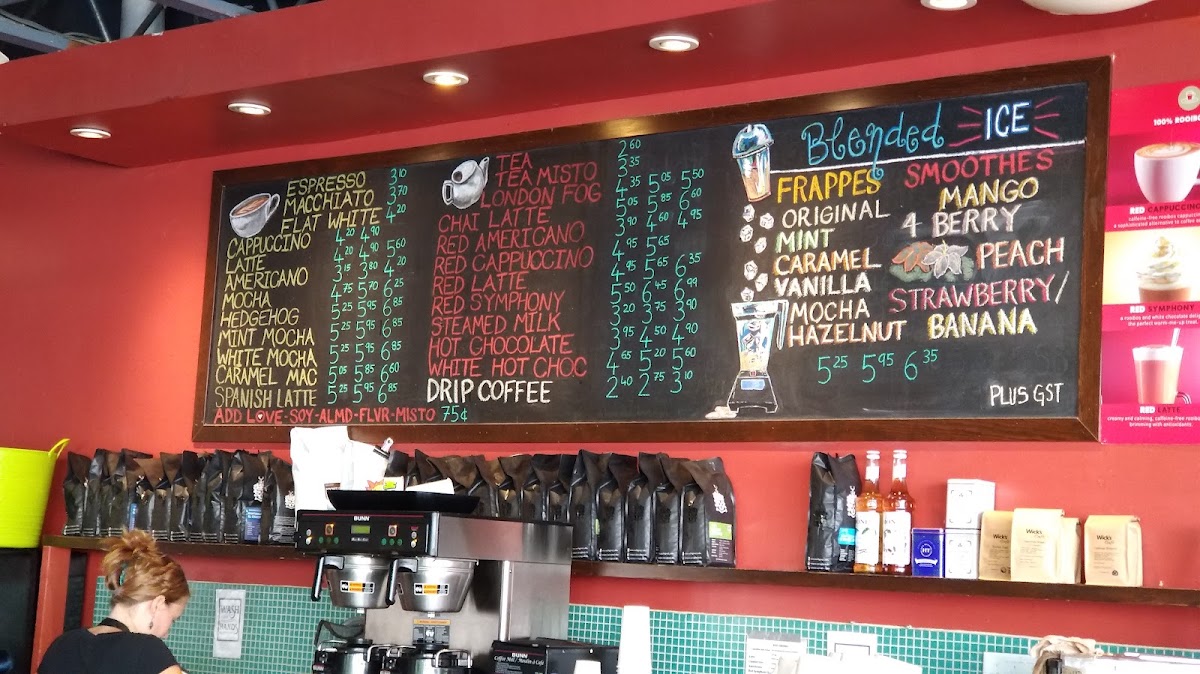 ESPRESSO 3 10
MACCHIATO 3 70
FLAT WHITE 4 20
CAPPUCCINO 4 20 4 90
LATTE 4 20 4 90 5 60
AMERICANO 3 15 3 80 4 20
MOCHA 4 75 5 70 6 25
HEDGEHOG 5 25 5 95 6 85
MINT MOCHA 5 25 5 95 6 85
WHITE MOCHA 5 25 5 95 6 85
CARAMEL MAC 5 05 5 85 6 60
SPANISH LATTE 5 25 5 95 6 85
ADD LOVE-SOY-ALMD-FLVR-MISTO 75¢
TEA 2 60
TEA MISTO 3 35
LONDON FOG 4 35 5 05 5 50
CHAI LATTE 5 05 5 85 6 60
RED AMERICANO 3 90 4 60 4 95
RED CAPPUCCINO 4 95 5 65
RED LATTE 4 95 5 65 6 35
RED SYMPHONY 5 50 6 45 6 99
STEAMED MILK 3 20 3 75 3 90
HOT CHOCOLATE 3 95 4 50 4 90
WHITE HOT CHOC 4 65 5 20 5 60
DRIP COFFEE 2 40 2 75 3 10
Blended ICE
FRAPPES
ORIGINAL
MINT
CARAMEL
VANILLA
MOCHA
HAZELNUT
SMOOTHES
MANGO
4 BERRY
PEACH
STRAWBERRY/
BANANA
5 25 5 95 6 35
PLUS GST
100% ROOIBO
RED CAPPUCCINO
RED SYMPHONY
RED LATTE
BUNN
WASH
HANDS
BUNN